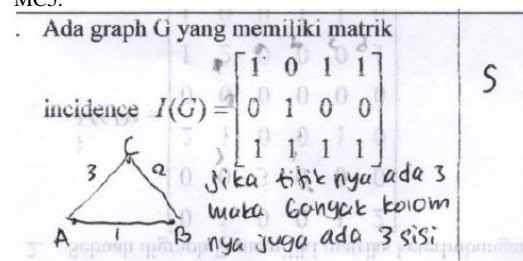 MC3.
. Ada graph G yang memiliki matrik
incidence I(G) =
1 0 1 1
0 1 0 0
1 1 1 1
S
C
3 2
A 1 B
jika titik nya ada 3
maka banyak kolom
nya juga ada 3 sisi